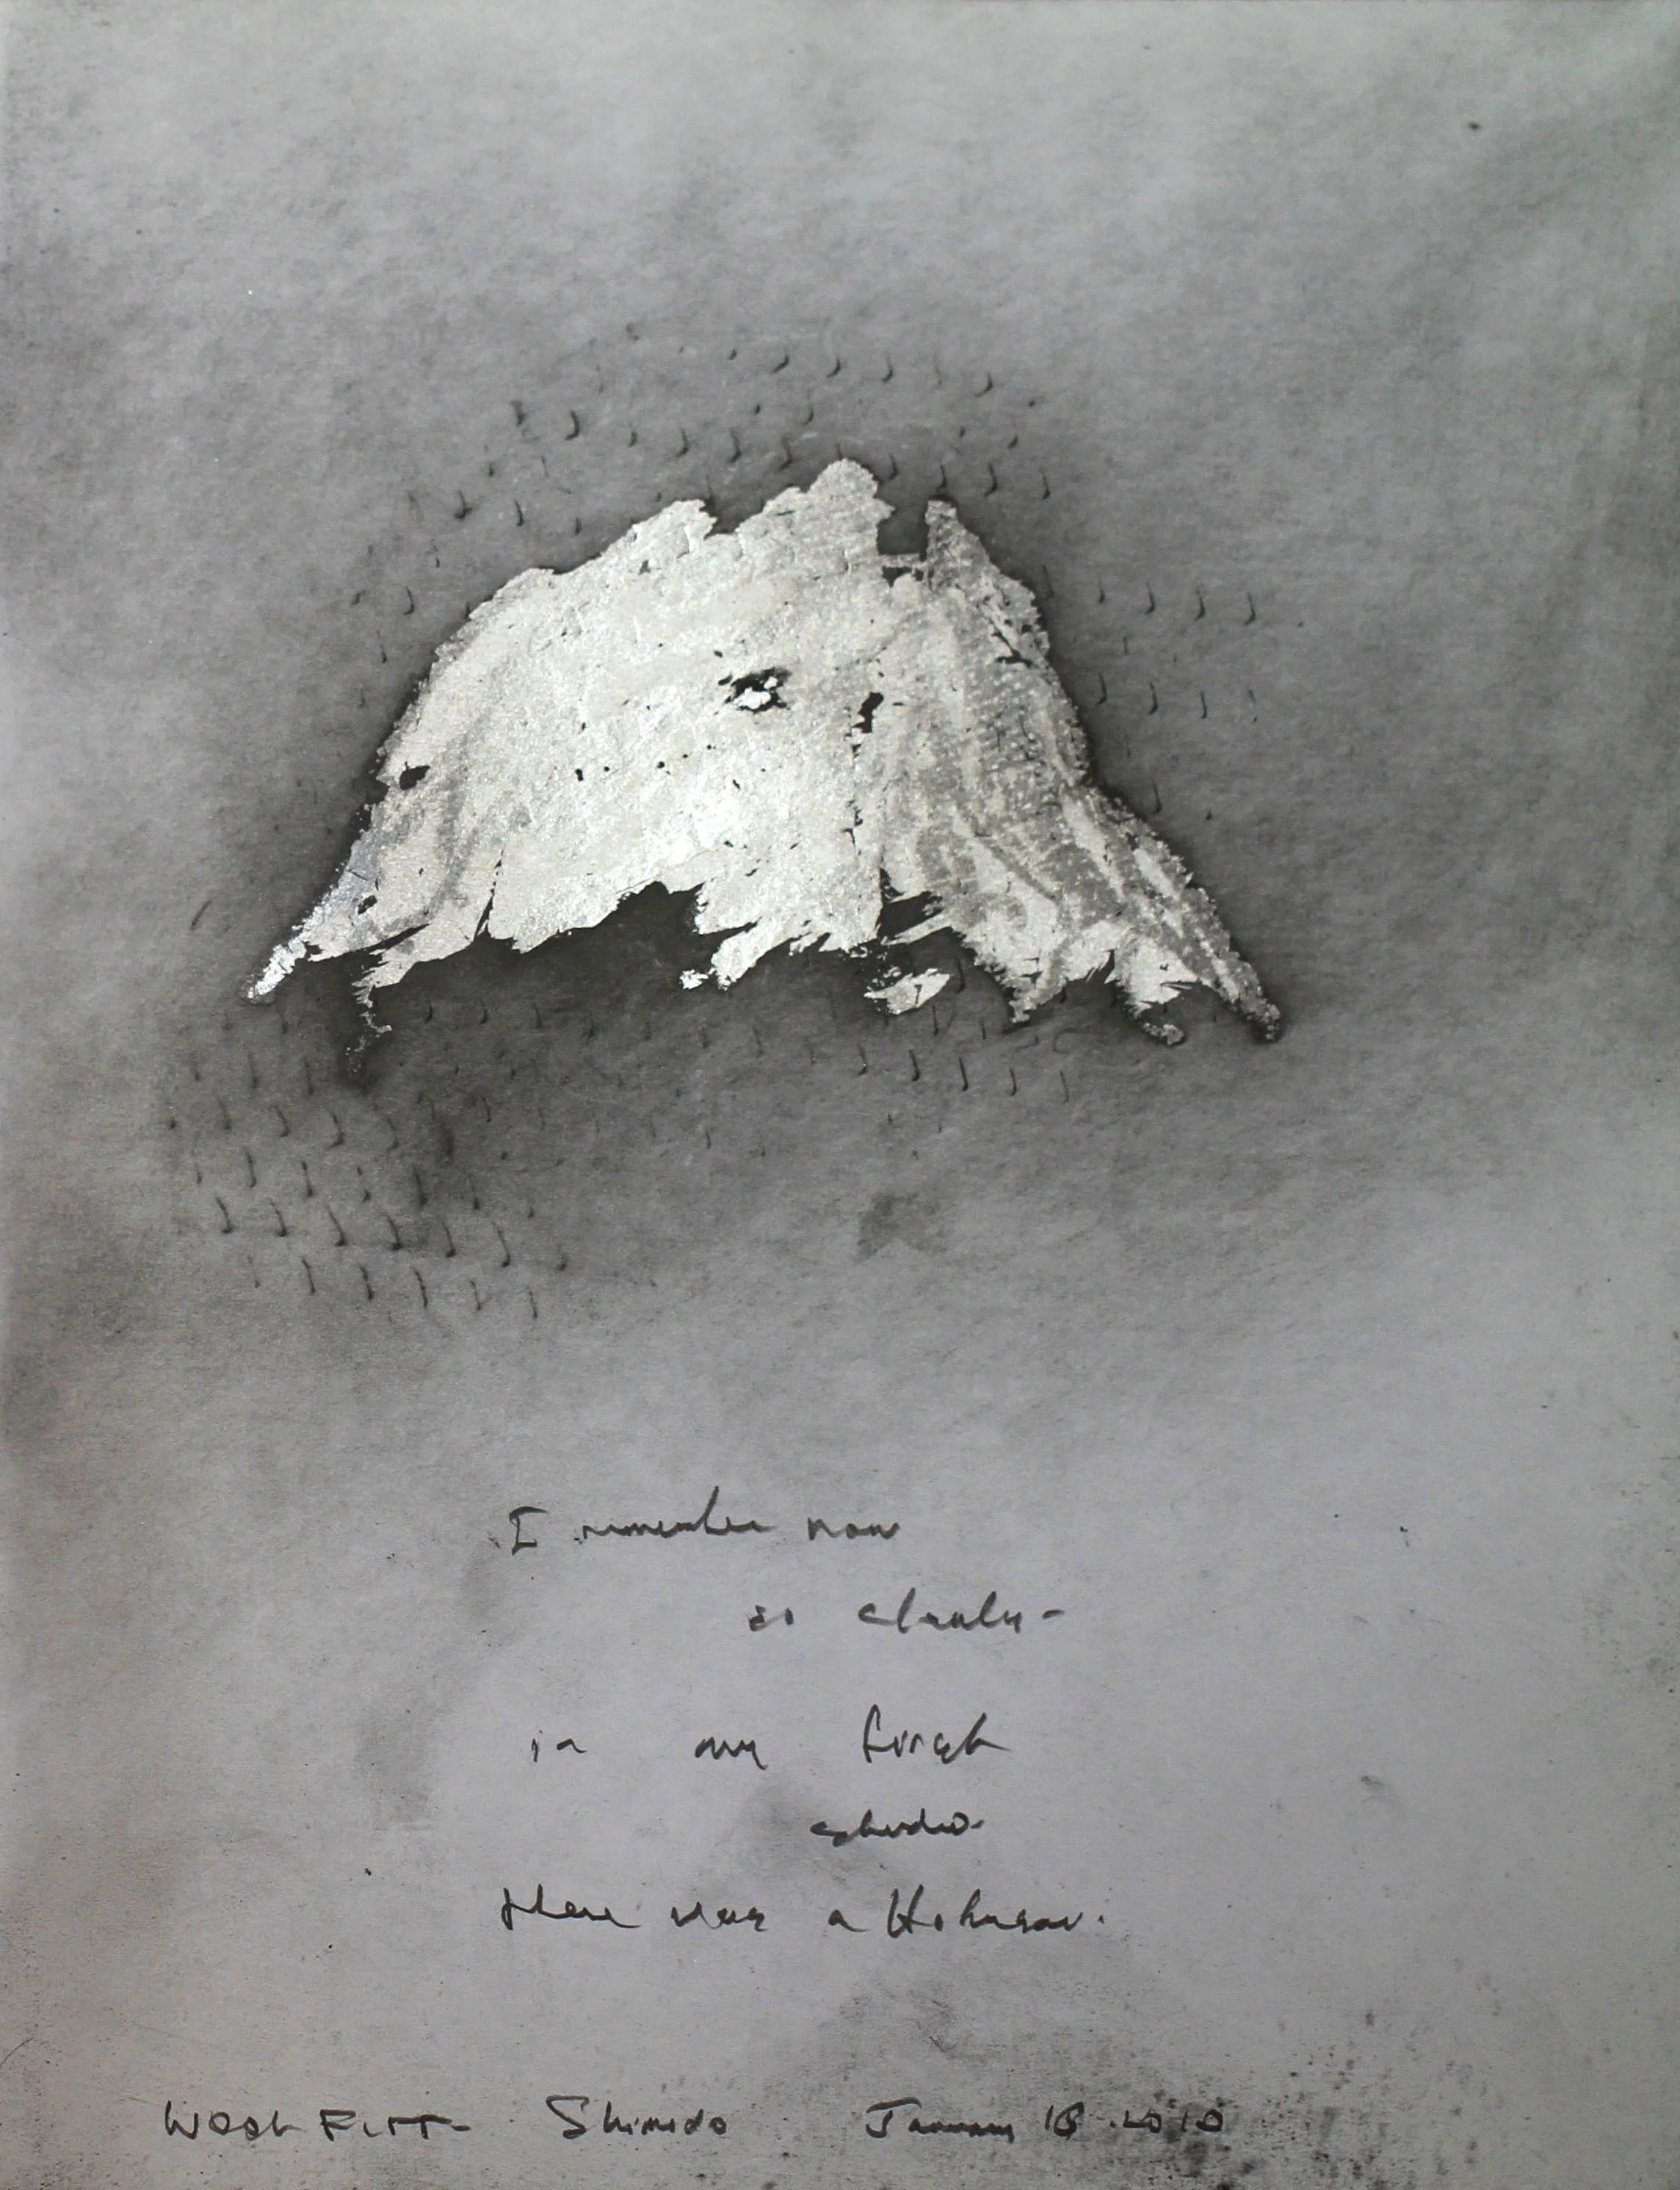 I remember now
so clearly -
in my first
studio
there was a Hokusai.
WEEK FIFTY Shimoda January 18.2010